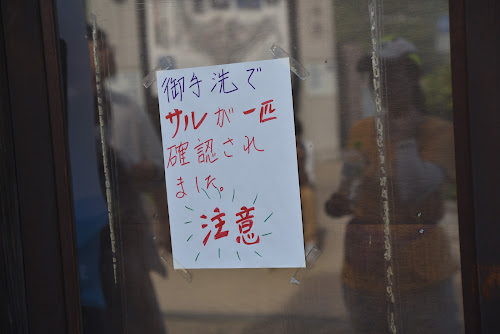 御手洗で
サルが一匹
確認され
ました。
注意